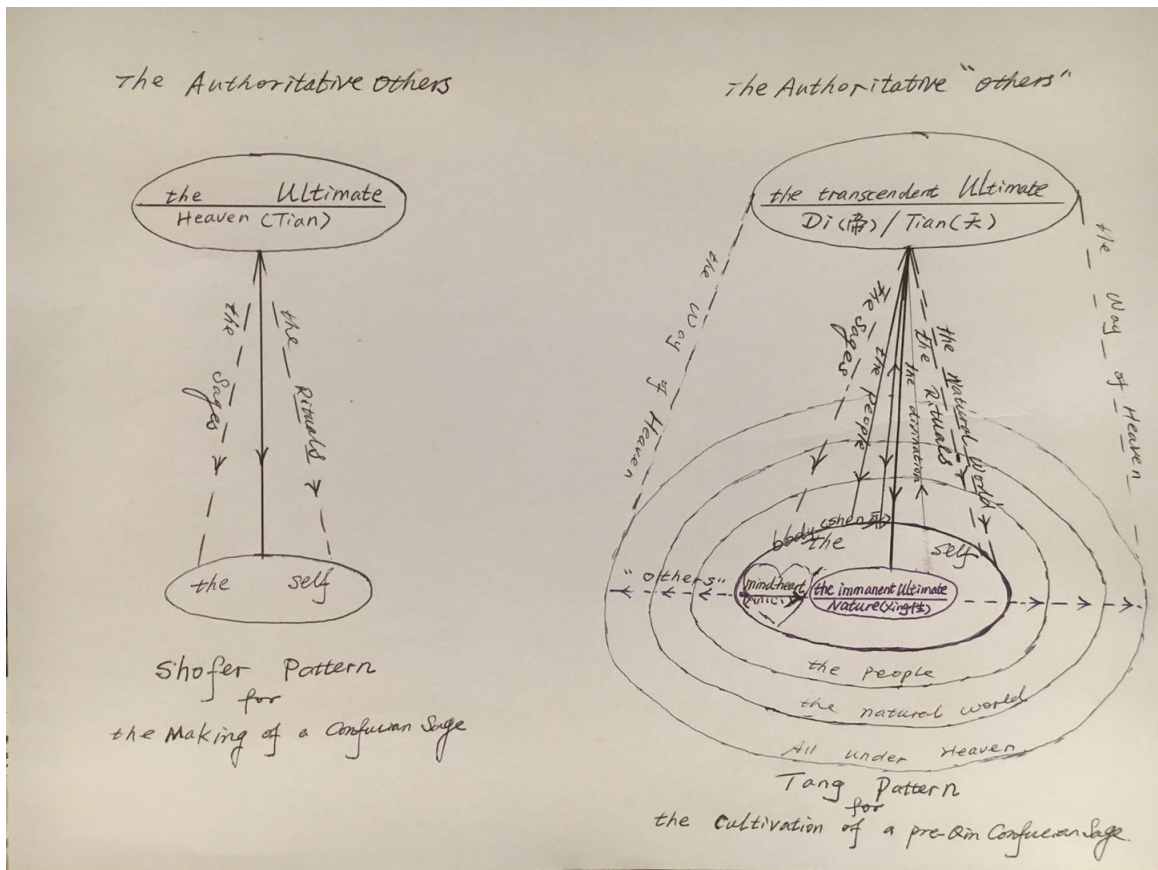 The Authoritative Others
the Ultimate
Heaven (Tian)
the Sages
the Rituals
the self
Shofer Pattern
for
the Making of a Confucian Sage
The Authoritative "Others"
the transcendent Ultimate
Di (帝) / Tian (天)
the Way of Heaven
the Way of Heaven
the Sages
the people
the divination
the Rituals
the Natural World
body (shen
the self
"others"
mind-heart
the immanent Ultimate
Nature (Xing 性)
the people
the natural world
All under Heaven
Tang Pattern
for
the cultivation of a pre-Qin Confucian Sage